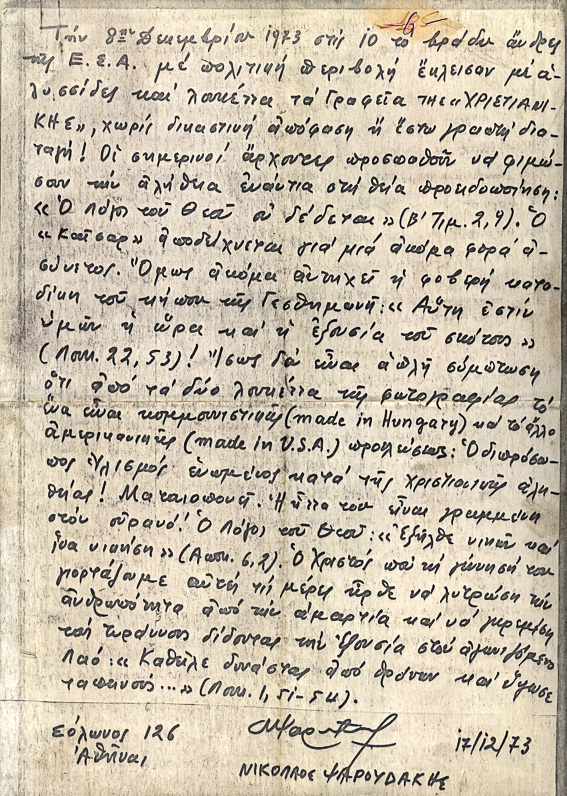 6
Τήν 8ην Δεκεμβρίου 1973 στίς 10 τό βράδυ ἄνδρες
τῆς Ε.Σ.Α. μέ πολιτική περιβολή ἔκλεισαν μέ ἁ-
λυσσίδες καί λουκέττα τά Γραφεῖα ΤΗΣ «ΧΡΙΣΤΙΑΝΙ-
ΚΗΣ», χωρίς δικαστική ἀπόφαση ἤ ἔστω γραπτή δια-
ταγή! Οἱ σημερινοί ἄρχοντες προσπαθοῦν νά φιμώ-
σουν τήν ἀλήθεια ἐνάντια στή θεία προειδοποίηση:
«Ὁ Λόγος τοῦ Θεοῦ οὐ δέδεται» (Β' Τιμ. 2,9). Ὁ
«Καῖσαρ» ἀποδείχνεται γιά μιά ἀκόμα φορά ἀ-
σύνετος. Ὅμως ἀκόμα ἀντηχεῖ ἡ φοβερή κατα-
δίκη τοῦ κήπου τῆς Γεσθημανῆ: «Αὕτη ἐστίν
ὑμῶν ἡ ὥρα καί ἡ ἐξουσία τοῦ σκότους»
(Λουκ. 22, 53)! Ἴσως νά εἶναι ἁπλή σύμπτωση
ὅτι ἀπό τά δύο λουκέττα τῆς φωτογραφίας τό
ἕνα εἶναι κομμουνιστικῆς (made in Hungary) καί τό ἄλλο
ἀμερικανικῆς (made in U.S.A.) προελεύσεως: Ὁ διπρόσω-
πος Ὑλισμός ἑνωμένος κατά τῆς χριστιανικῆς ἀλη-
θείας! Ματαιοπονεῖ. Ἡ ἧττα του εἶναι γραμμένη
στόν οὐρανό! Ὁ Λόγος τοῦ Θεοῦ: «Ἐξῆλθε νικῶν καί
ἵνα νικήσῃ» (Αποκ. 6,2). Ὁ Χριστός πού τή γέννησή του
γιορτάζουμε αὐτές τίς μέρες ἦρθε νά λυτρώση τήν
ἀνθρωπότητα ἀπό τήν ἁμαρτία καί νά γκρεμίση
τούς τυράννους δίδοντας τήν ἐξουσία στόν ἀγωνιζόμενο
Λαό: «Καθεῖλε δυνάστας ἀπό θρόνων καί ὕψωσε
ταπεινούς...» (Λουκ. 1, 51-54).
Σόλωνος 126
Ἀθῆναι
17/12/73
ΝΙΚΟΛΑΟΣ ΨΑΡΟΥΔΑΚΗΣ